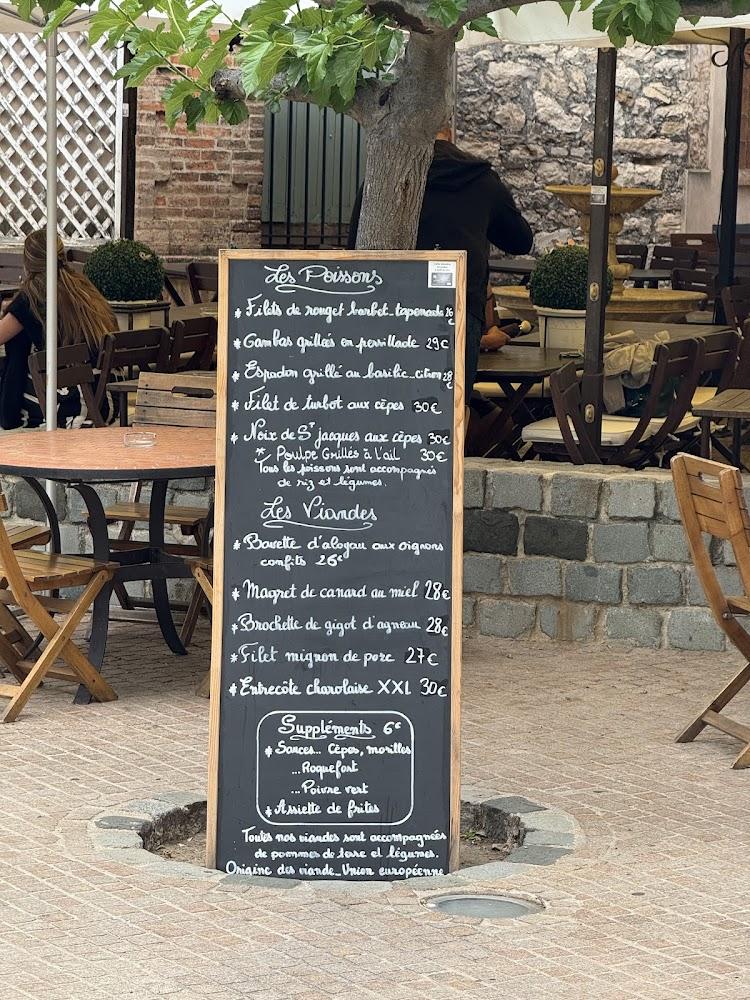 Les Poissons
* Filets de rouget barbet_tapenade 26€
* Gambas grillées en persillade 29€
* Espadon grillé au basilic_citron 28€
* Filet de turbot aux cèpes 30€
* Noix de St jacques aux cèpes 30€
* Poulpe Grillés à l'ail 30€
Tous les poissons sont accompagnés
de riz et légumes.
Les Viandes
* Bavette d'aloyau aux oignons
confits 26€
* Magret de canard au miel 28€
* Brochette de gigot d'agneau 28€
* Filet mignon de porc 27€
* Entrecôte charolaise XXL 30€
Suppléments 6€
* Sauces... Cèpes, morilles
...Roquefort
...Poivre vert
* Assiette de frites
Toutes nos viandes sont accompagnées
de pommes de terre et légumes.
Origine des viande_Union européenne